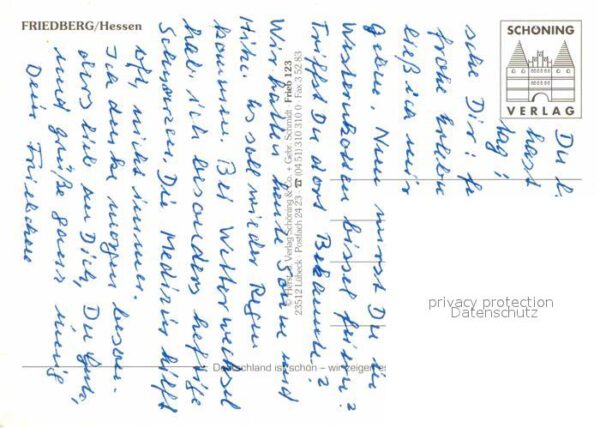 FRIEDBERG/Hessen
SCHÖNING
VERLAG
© Herst. u. Verlag Schöning & Co. + Gebr. Schmidt Frieb 123
23512 Lübeck · Postfach 24 23 · ☎ (04 51) 310 310 0 · Fax 3 52 83
Deutschland ist schön – wir zeigen es
privacy protection
Datenschutz
Du l.
hast
Tag!
sche Dir:
frohe
ließ ich mir
geben. Nun mußt Du in
bissel frieren?
Triffst Du dort Bekannte?
Wir hatten heute Sonne und
Hitze. Es soll wieder Regen
kommen. Bei Wetterwechsel
hab' ich besonders heftige
Schmerzen. Die Medizin hilft
oft, nicht immer.
Ich denke morgen beson-
ders lieb an Dich, Du Gute,
und grüße ganz innig
Dein Friedchen